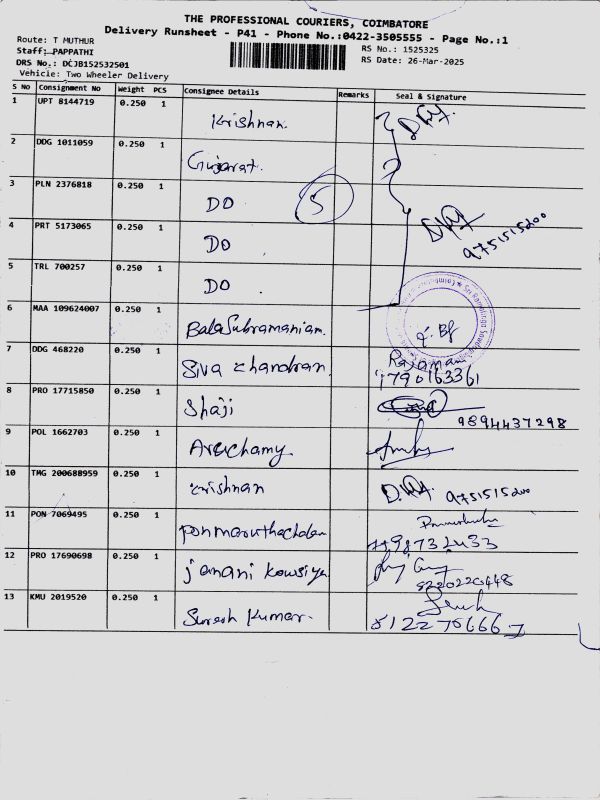 THE PROFESSIONAL COURIERS, COIMBATORE
Delivery Runsheet - P41 - Phone No.:0422-3505555 - Page No.:1
Route: T MUTHUR
RS No.: 1525325
Staff: PAPPATHI
RS Date: 26-Mar-2025
DRS No.: DCJB152532501
Vehicle: Two Wheeler Delivery
S No Consignment No Weight PCS Consignee Details Remarks Seal & Signature
1 UPT 8144719 0.250 1 Krishnan.
2 DDG 1011059 0.250 1 Gujarat.
3 PLN 2376818 0.250 1 DO 5
4 PRT 5173065 0.250 1 DO 9751515200
5 TRL 700257 0.250 1 DO
6 MAA 109624007 0.250 1 BalaSubramaniam.
7 DDG 468220 0.250 1 Siva Chandran. Rajamani
9790163361
8 PRO 17715850 0.250 1 Shaji
9894437298
9 POL 1662703 0.250 1 Aruchamy.
10 TMG 200688959 0.250 1 Krishnan 9751515200
11 PON 7069495 0.250 1
12 PRO 17690698 0.250 1 Janani Kowsiya
13 KMU 2019520 0.250 1 Suresh Kumar.